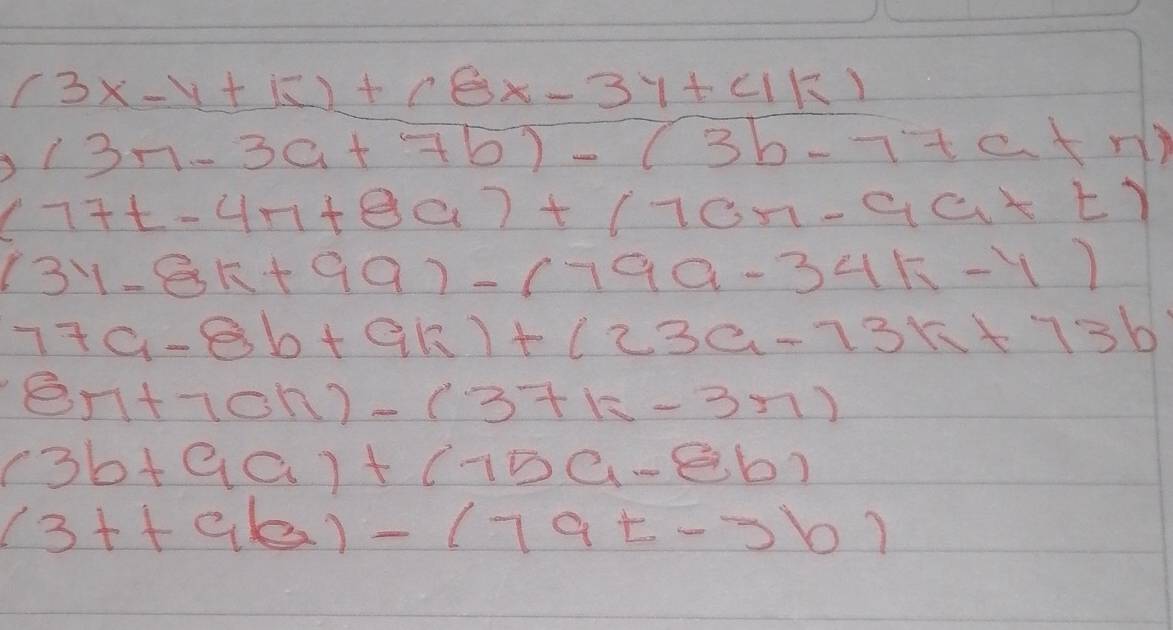 (3x-y+k)+(8x-3y+4k)
(3n-3a+7b)-(3b-17a+n)
(17t-4n+8a)+(10n-9a+t)
(3y-8k+9a)-(19a-34k-y)
17a-8b+9k)+(23a-13k+13b
8n+10k)-(37k-3n)
(3b+9a)+(15a-8b)
(3t+9b)-(19t-3b)